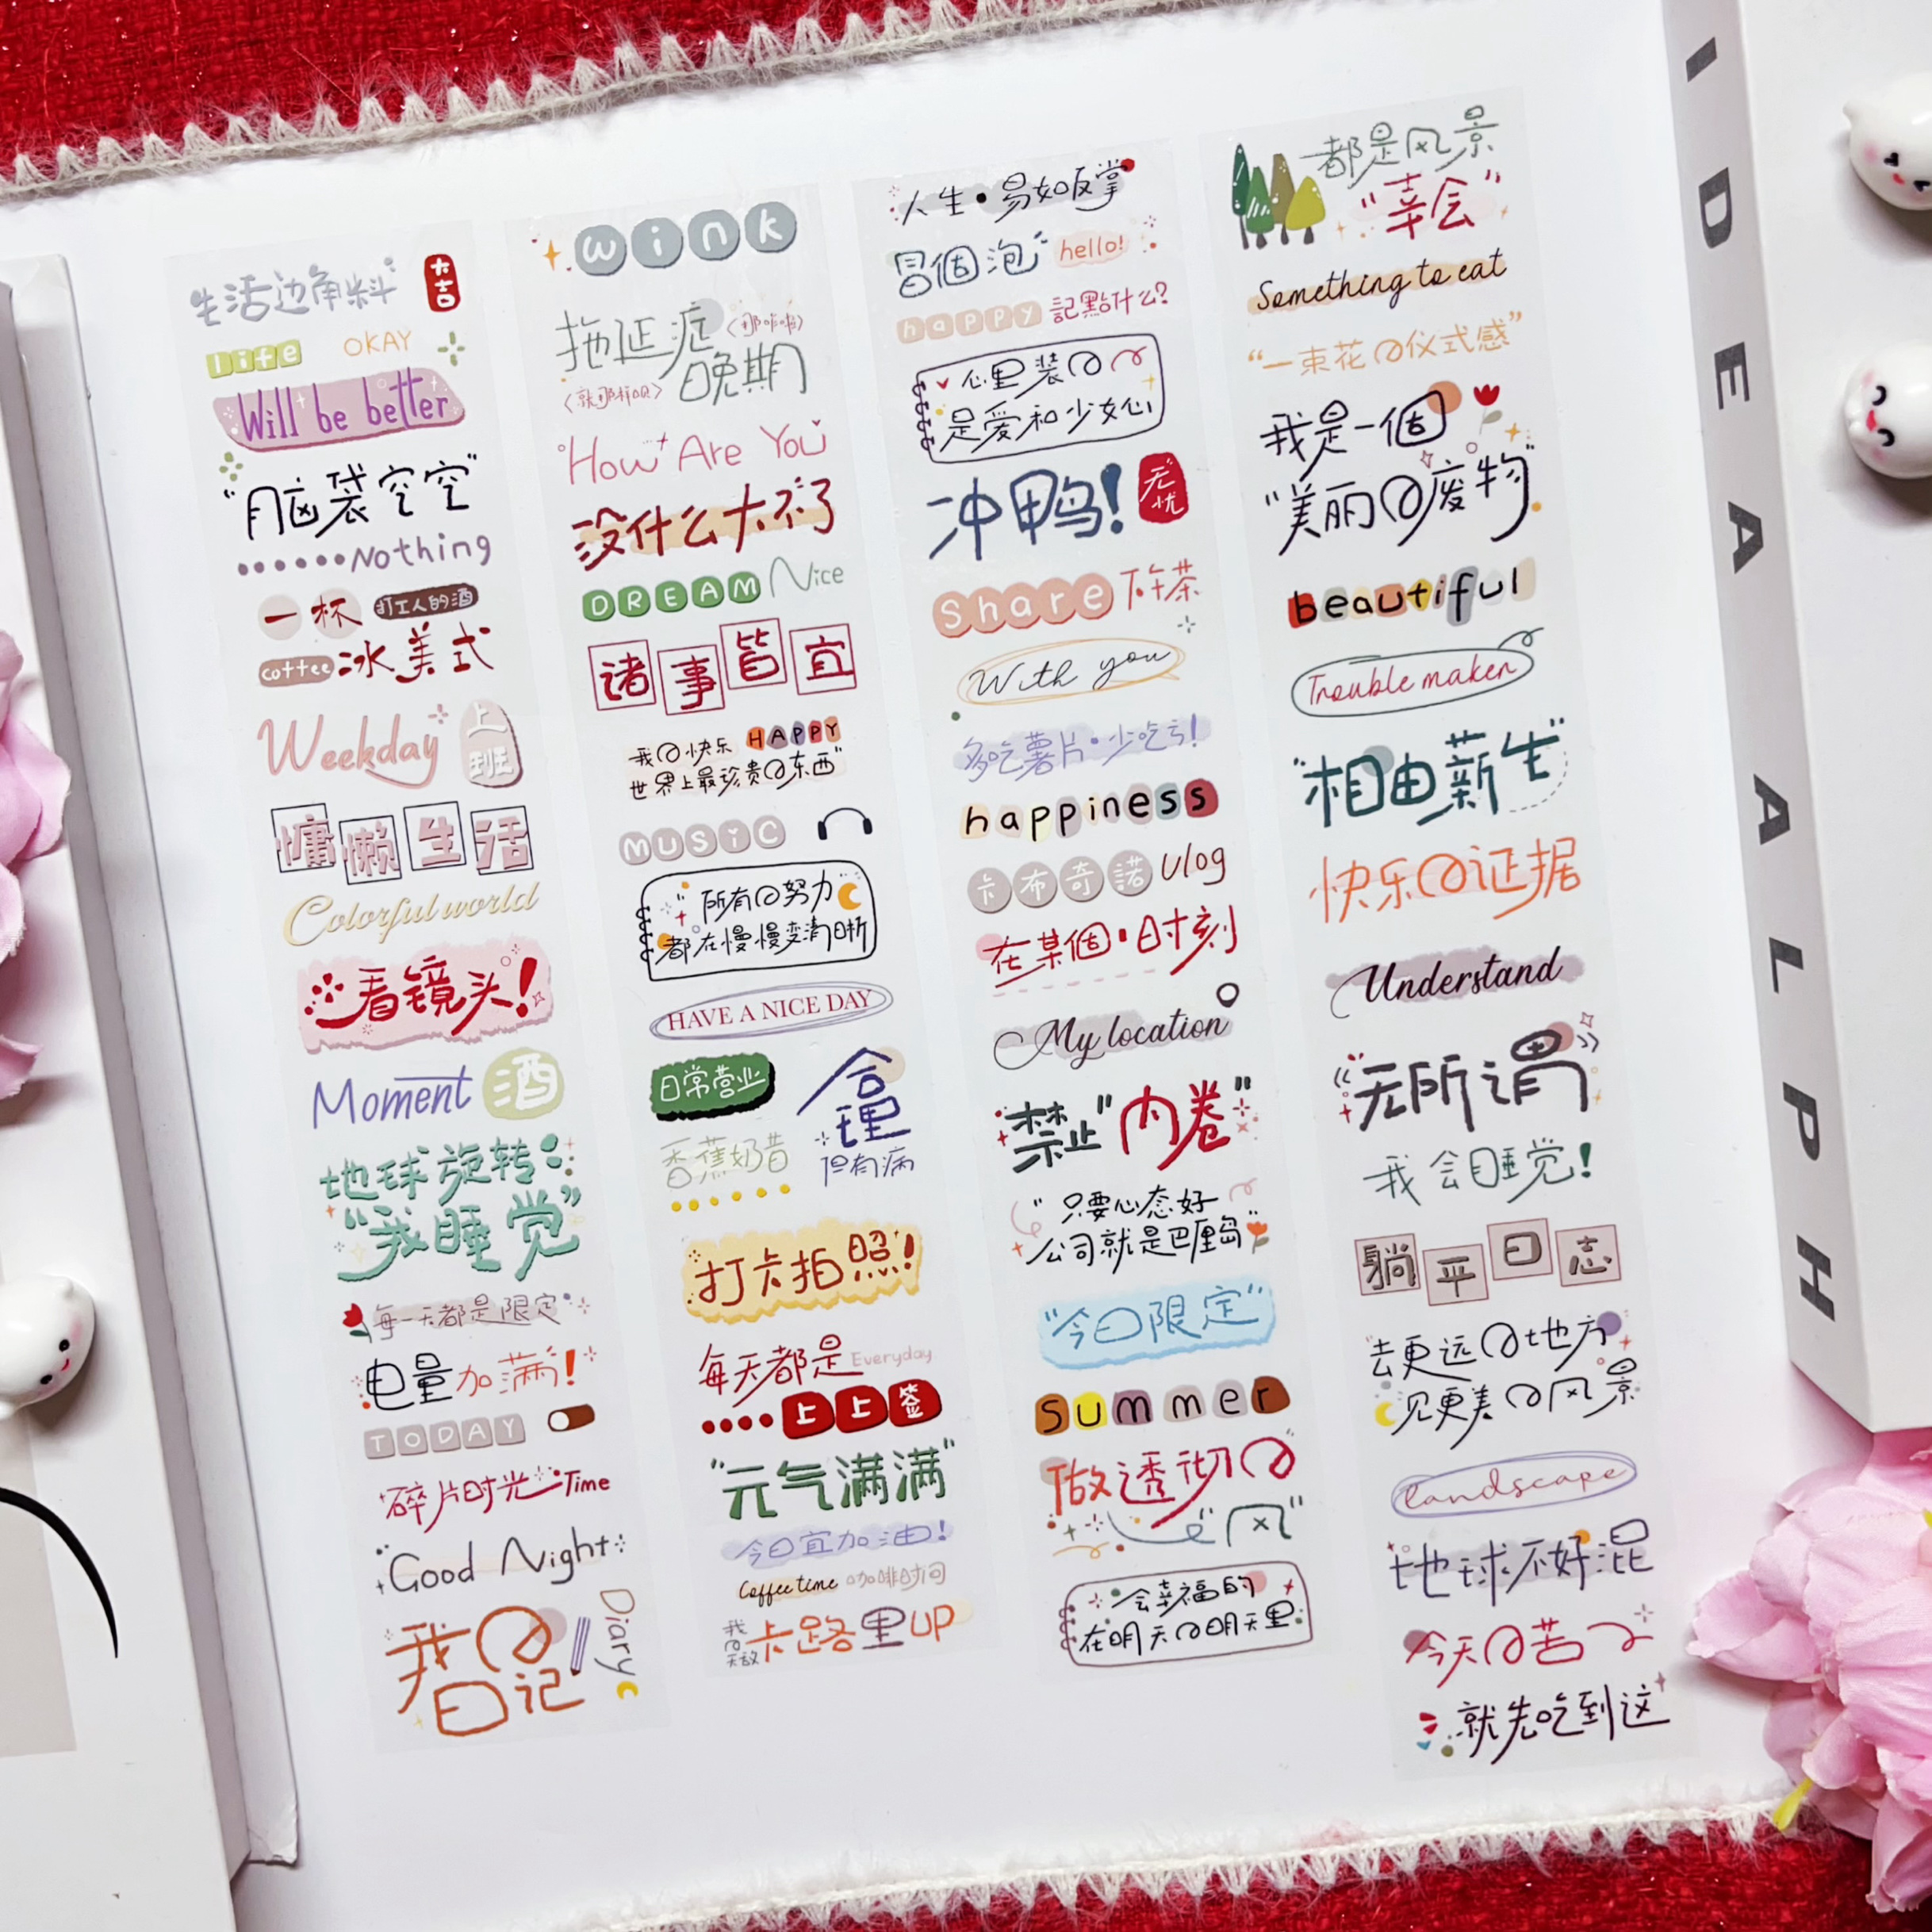 生活边角料
大吉
life OKAY
Will be better
“脑袋空空”
Nothing
一杯 打工人的酒
coffee 冰美式
Weekday 上班
慵懒生活
Colorful world
看镜头!
Moment 酒
地球旋转
“我睡觉”
每一天都是限定
电量加满!
TODAY
碎片时光 Time
Good Night
我の日记
Diary
wink
拖延症
晚期
How Are You
没什么大不了
DREAM Nice
诸事皆宜
我の快乐 HAPPY
世界上最珍贵の东西
MUSIC
所有の努力
都在慢慢变清晰
HAVE A NICE DAY
日常营业
合理
但有病
香蕉奶昔
打卡拍照!
每天都是 Everyday
上上签
“元气满满”
今日宜加油!
Coffee time 咖啡时间
卡路里UP
人生·易如反掌
冒個泡 hello!
happy 記點什么?
心里装の
是爱和少女心
冲鸭! 无忧
Share 下午茶
With you
多吃薯片·少吃亏!
happiness
卡布奇諾 Vlog
在某個·时刻
My location
禁止“内卷”
“只要心态好
公司就是巴厘岛
“今日限定”
summer
做透彻の
“风”
会幸福的
在明天の明天里
都是风景
“幸会”
Something to eat
“一束花の仪式感”
我是一個
“美丽の废物”
beautiful
Trouble maker
“相由薪生”
快乐の证据
Understand
无所谓
我会睡觉!
躺平日志
去更远の地方
见更美の风景
landscape
地球不好混
今天の苦
就先吃到这
IDEA ALPH